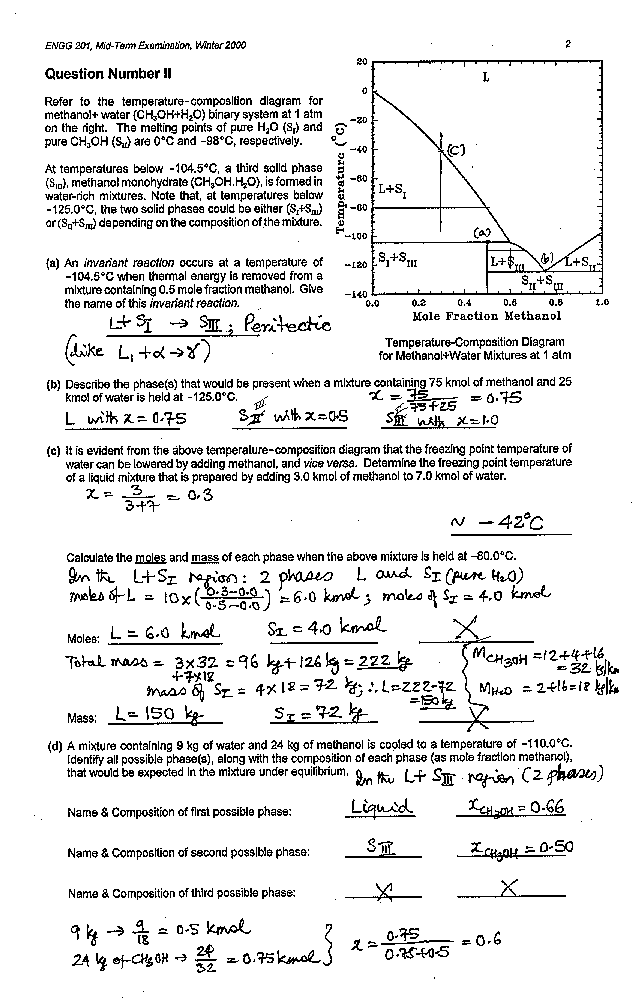 ENGG 201, Mid-Term Examination, Winter 2000
2
Question Number II
Refer to the temperature-composition diagram for
methanol+ water (CH₃OH+H₂O) binary system at 1 atm
on the right. The melting points of pure H₂O (S_I) and
pure CH₃OH (S_II) are 0°C and -98°C, respectively.
At temperatures below -104.5°C, a third solid phase
(S_III), methanol monohydrate (CH₃OH.H₂O), is formed in
water-rich mixtures. Note that, at temperatures below
-125.0°C, the two solid phases could be either (S_I+S_III)
or (S_II+S_III) depending on the composition of the mixture.
(a) An invariant reaction occurs at a temperature of
-104.5°C when thermal energy is removed from a
mixture containing 0.5 mole fraction methanol. Give
the name of this invariant reaction.
L + S_I → S_III ; Peritectic
(like L₁ + α → γ)
20
0
-20
-40
-60
-80
-100
-120
-140
Temperature (°C)
L
(c)
L+S_I
(a)
S_I+S_III
L+S_III
(b)
L+S_II
S_II+S_III
0.0 0.2 0.4 0.6 0.8 1.0
Mole Fraction Methanol
Temperature-Composition Diagram
for Methanol+Water Mixtures at 1 atm
(b) Describe the phase(s) that would be present when a mixture containing 75 kmol of methanol and 25
kmol of water is held at -125.0°C.
x = 75/75+25 = 0.75
L with x = 0.75 S_III with x=0.5 S_II with x=1.0
(c) It is evident from the above temperature-composition diagram that the freezing point temperature of
water can be lowered by adding methanol, and vice versa. Determine the freezing point temperature
of a liquid mixture that is prepared by adding 3.0 kmol of methanol to 7.0 kmol of water.
x = 3/3+7 = 0.3
~ -42°C
Calculate the moles and mass of each phase when the above mixture is held at -80.0°C.
In the L+S_I region: 2 phases L and S_I (pure H₂O)
moles of L = 10x(0.3-0.0/0.5-0.0) = 6.0 kmol ; moles of S_I = 4.0 kmol
Moles: L = 6.0 kmol S_I = 4.0 kmol X
Total mass = 3x32 +7x18 = 96 kg + 126 kg = 222 kg
M_CH₃OH = 12+4+16 = 32 kg/km
mass of S_I = 4x18 = 72 kg; ∴ L=222-72 = 150 kg
M_H₂O = 2+16=18 kg/km
Mass: L = 150 kg S_I = 72 kg X
(d) A mixture containing 9 kg of water and 24 kg of methanol is cooled to a temperature of -110.0°C.
Identify all possible phase(s), along with the composition of each phase (as mole fraction methanol),
that would be expected in the mixture under equilibrium. In the L+S_III region (2 phases)
Name & Composition of first possible phase: Liquid x_CH₃OH = 0.66
Name & Composition of second possible phase: S_III x_CH₃OH = 0.50
Name & Composition of third possible phase: X X
9 kg → 9/18 = 0.5 kmol
24 kg of CH₃OH → 24/32 = 0.75 kmol
x = 0.75/0.75+0.5 = 0.6